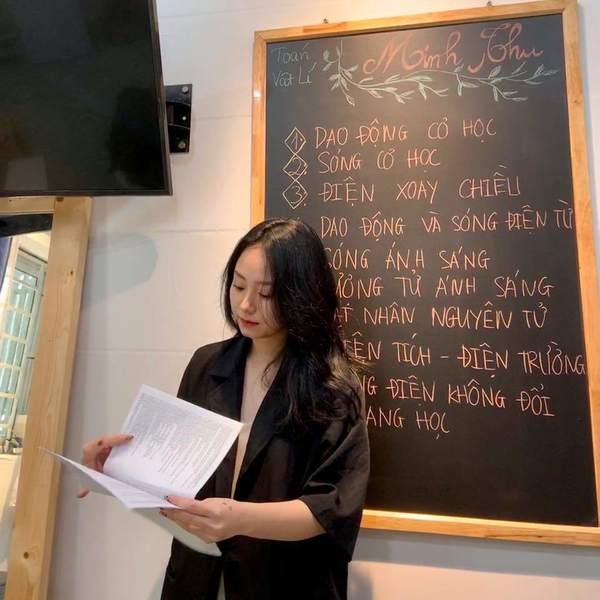 Toán Minh Thu
Vật Lí
1. DAO ĐỘNG CƠ HỌC
2. SÓNG CƠ HỌC
3. ĐIỆN XOAY CHIỀU
DAO ĐỘNG VÀ SÓNG ĐIỆN TỪ
SÓNG ÁNH SÁNG
TỬ ÁNH SÁNG
NHÂN NGUYÊN TỬ
TÍCH - ĐIỆN TRƯỜNG
ĐIỆN KHÔNG ĐỔI
HỌC